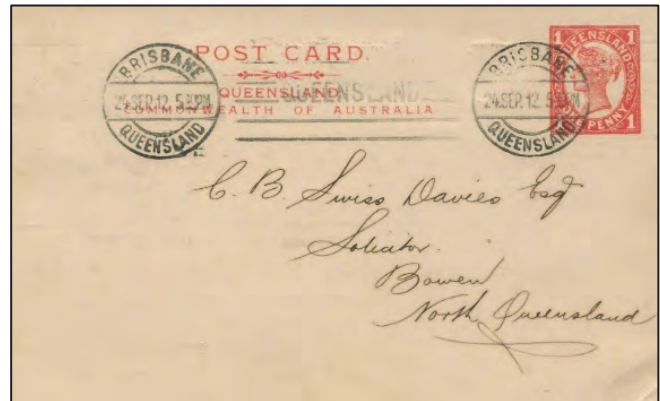 POST CARD.
QUEENSLAND
COMMONWEALTH OF AUSTRALIA
BRISBANE
24 SEP.12 5 30PM
QUEENSLAND
QUEENSLAND
BRISBANE
24 SEP.12 5 30PM
QUEENSLAND
1 QUEENSLAND 1
1 PENNY 1
C. B. Swiss Davies Esq
Solicitor.
Bowen
North Queensland